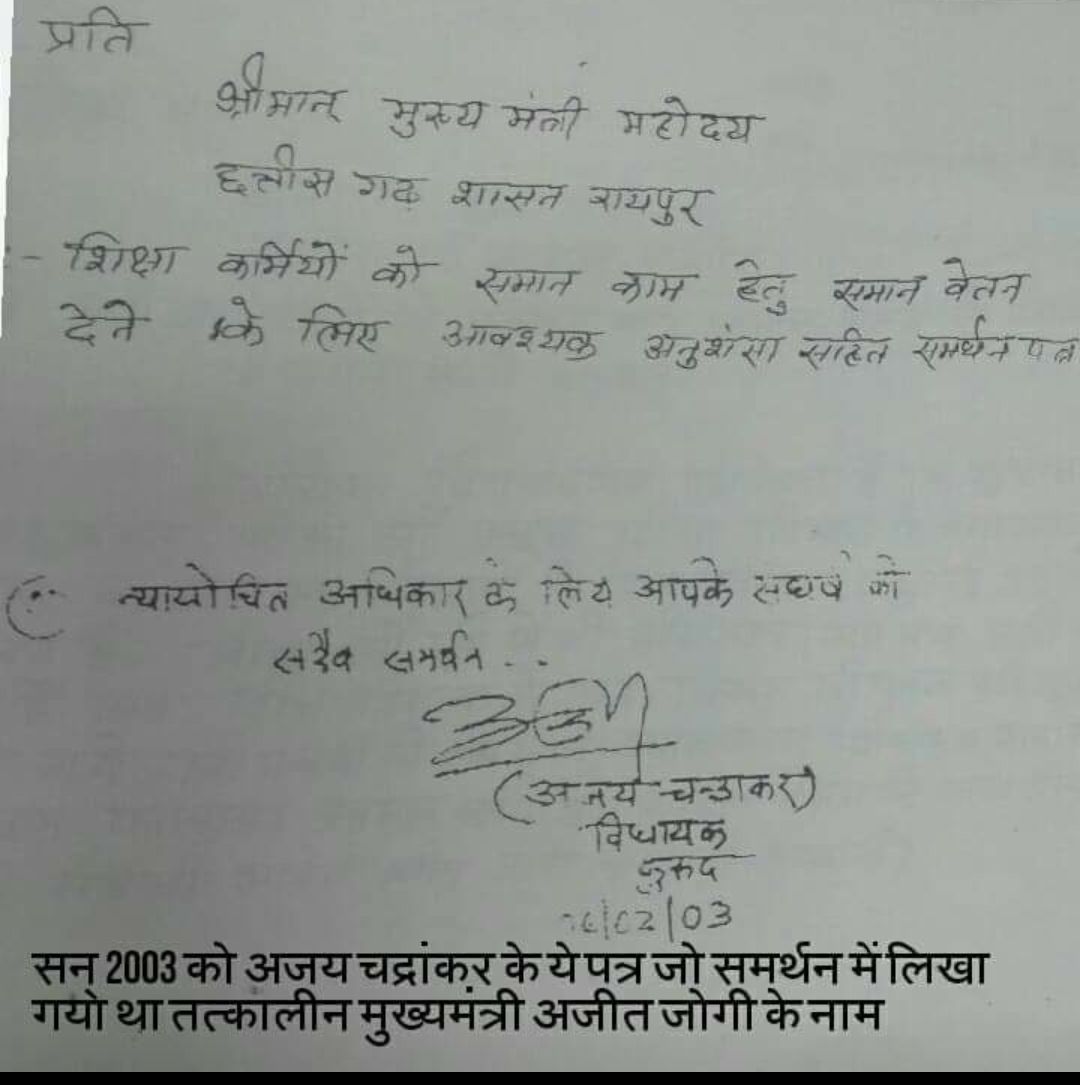 प्रति
श्रीमान् मुख्य मंत्री महोदय
छत्तीस गढ़ शासन रायपुर
:- शिक्षा कर्मियों को समान काम हेतु समान वेतन
देने के लिए आवश्यक अनुशंसा सहित समर्थन पत्र
न्यायोचित अधिकार के लिये आपके संघर्ष को
सदैव समर्थन . .
(अजय चन्द्राकर)
विधायक
कुरूद
/02/03
सन् 2003 को अजय चद्रांकर के ये पत्र जो समर्थन में लिखा
गयो था तत्कालीन मुख्यमंत्री अजीत जोगी के नाम